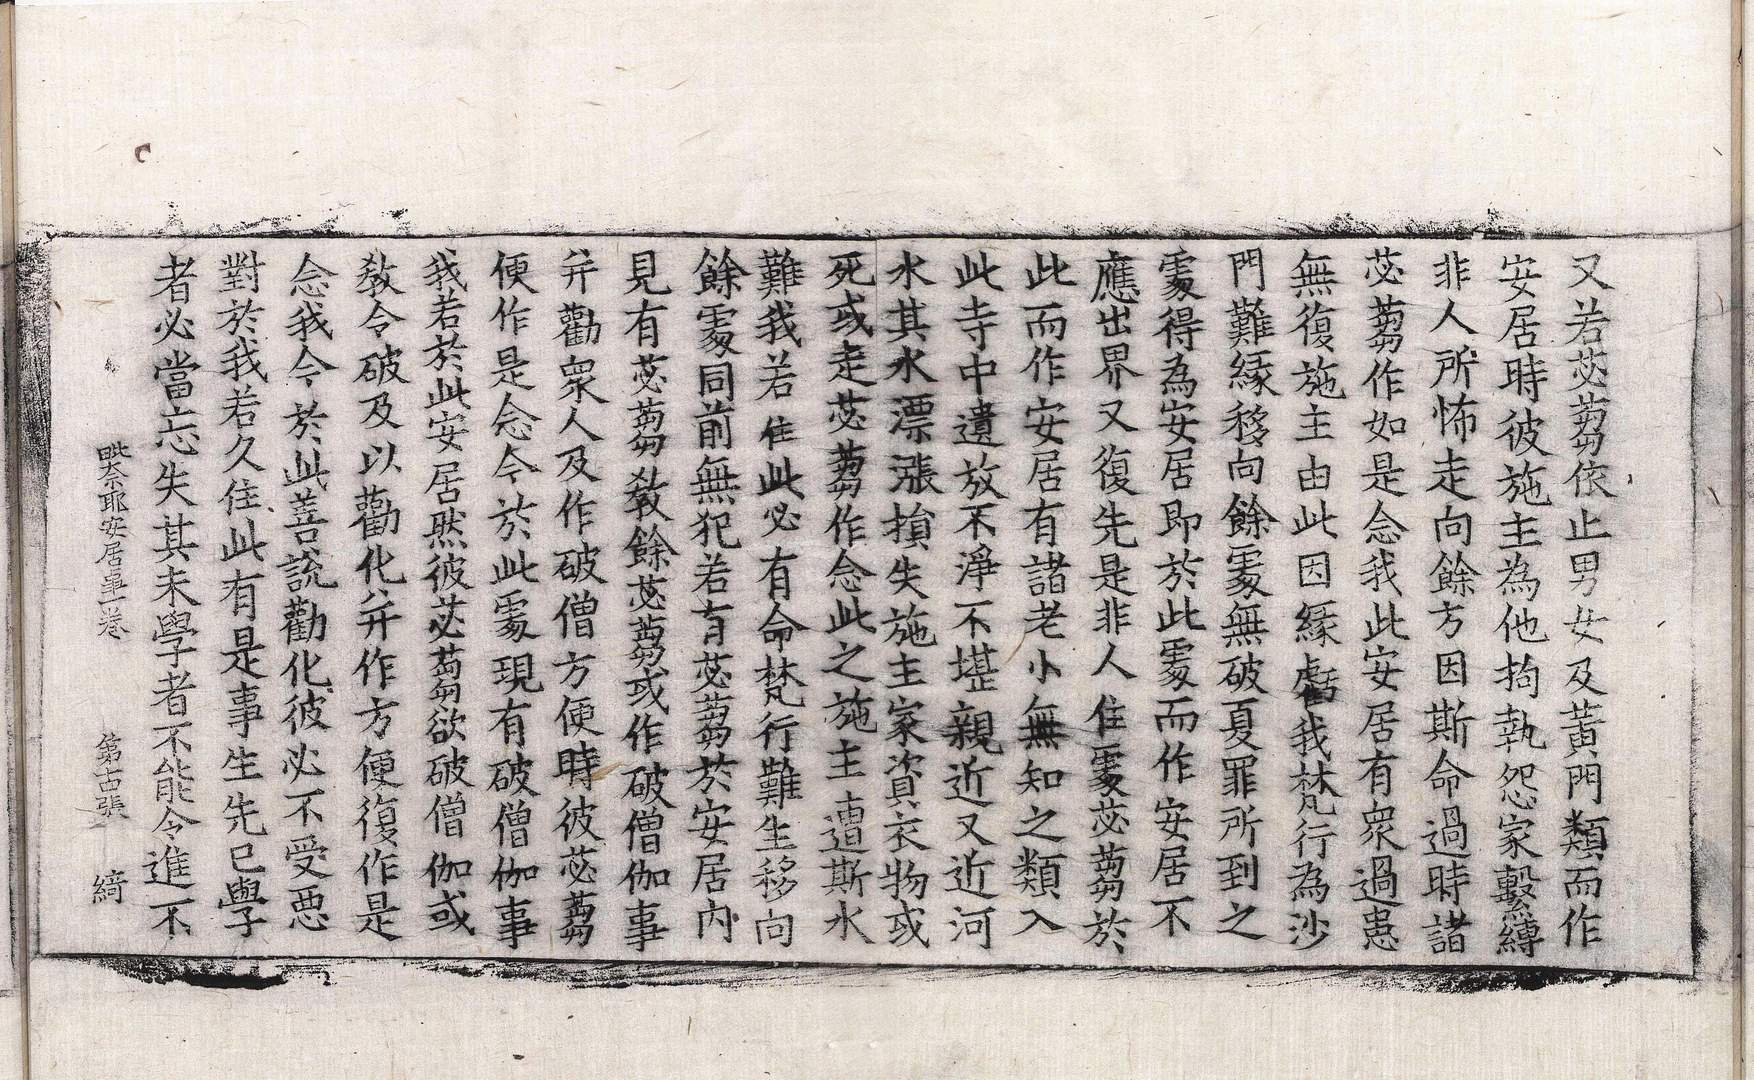 又若苾蒭依止男女及黃門類而作
安居時彼施主為他拘執怨家繫縛
非人所怖走向餘方因斯命過時諸
苾蒭作如是念我此安居有衆過患
無復施主由此因緣虧我梵行為沙
門難緣移向餘處無破夏罪所到之
處得為安居即於此處而作安居不
應出界又復先是非人住處苾蒭於
此而作安居有諸老小無知之類入
此寺中遺放不淨不堪親近又近河
水其水漂漲損失施主家資衣物或
死或走苾蒭作念此之施主遭斯水
難我若住此必有命梵行難生移向
餘處同前無犯若有苾蒭於安居內
見有苾蒭教餘苾蒭或作破僧伽事
并勸衆人及作破僧方便時彼苾蒭
便作是念今於此處現有破僧伽事
我若於此安居然彼苾蒭欲破僧伽或
教令破及以勸化并作方便復作是
念我今於此善說勸化彼必不受惡
對於我若久住此有是事生先已學
者必當忘失其未學者不能令進不
毗奈耶安居事一卷 第古張 綺